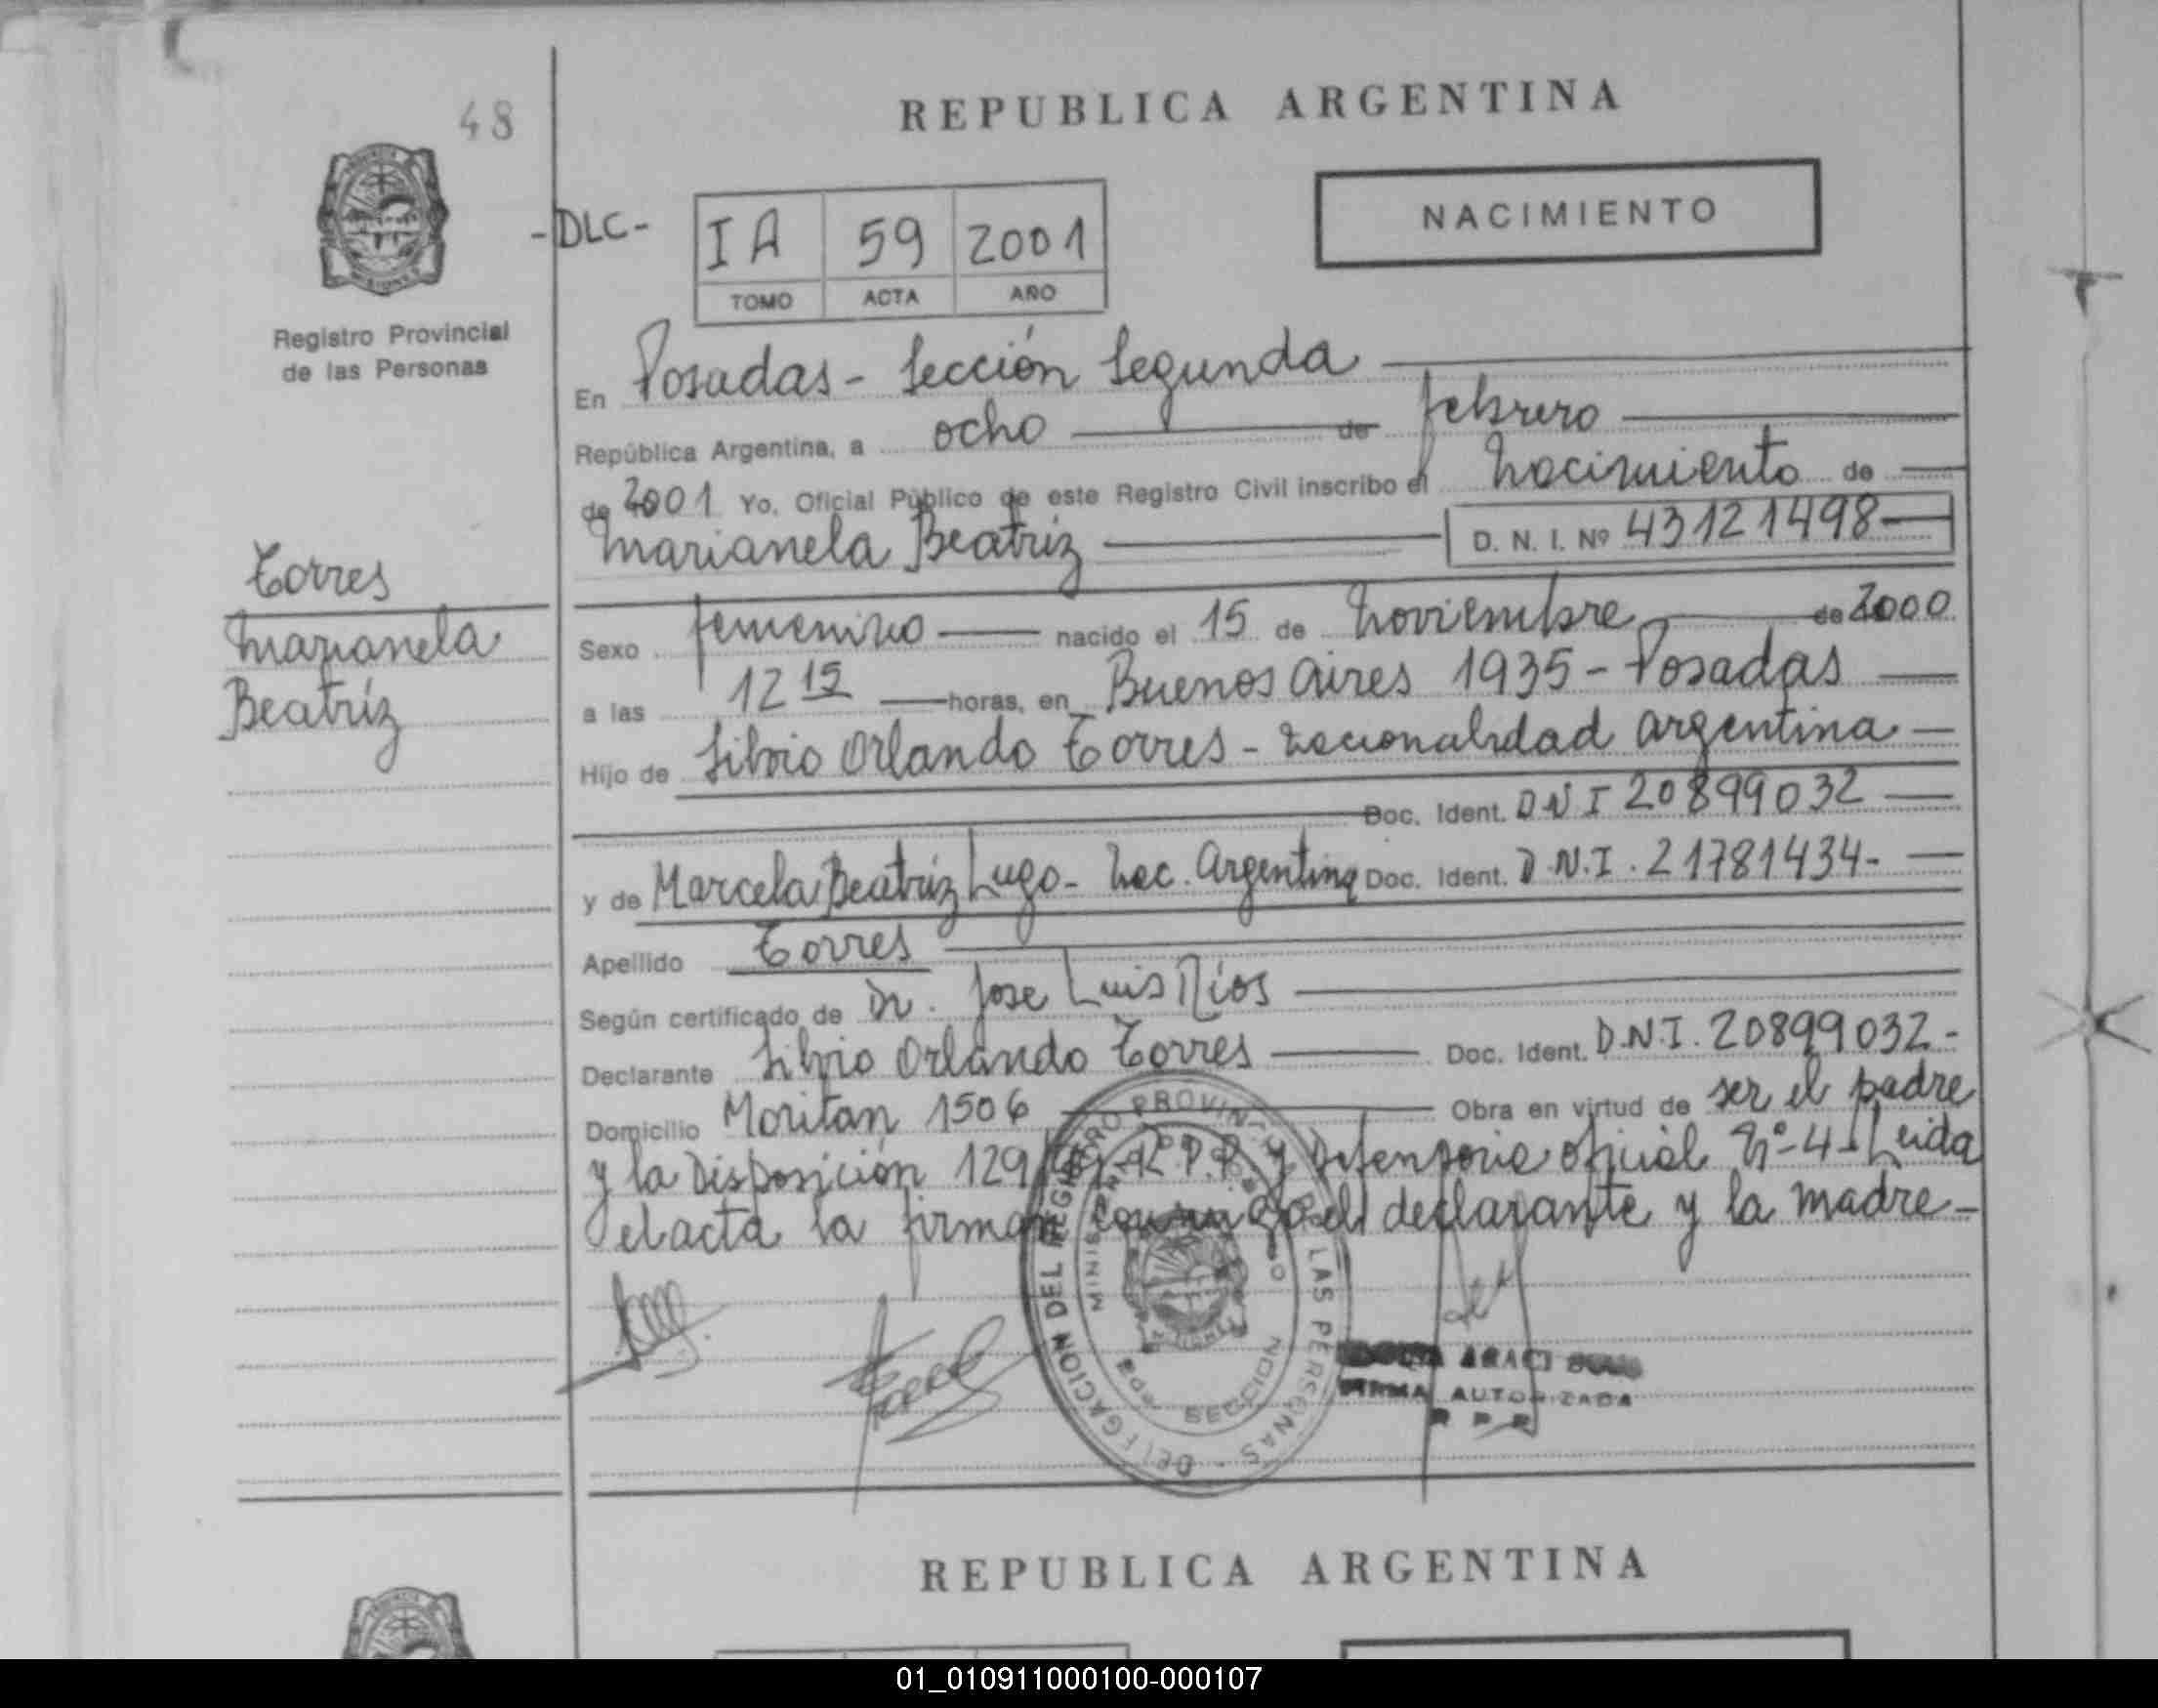 48
REPUBLICA ARGENTINA
NACIMIENTO
-DLC-
IA 59 2001
TOMO ACTA AÑO
Registro Provincial
de las Personas
En Posadas - Sección Segunda
República Argentina, a ocho de febrero
de 2001 Yo. Oficial Público de este Registro Civil inscribo el Nacimiento de
Marianela Beatriz D. N. I. Nº 43121498
Torres
Marianela
Beatríz
Sexo femenino nacido el 15 de Noviembre de 2000
a las 12 15 horas, en Buenos Aires 1935 - Posadas
Hijo de Silvio Orlando Torres - Nacionalidad argentina
Doc. Ident. DNI 20899032
y de Marcela Beatriz Lugo - Nac. Argentina Doc. Ident. D.N.I. 21781434-
Apellido Torres
Según certificado de Dr. Jose Luis Ríos
Declarante Silvio Orlando Torres Doc. Ident. D.N.I. 20899032-
Domicilio Moritan 1506 Obra en virtud de ser el padre
y la Disposición 129 R.P.P. y Defensoria oficial Nº 4 - Leida
el acta la firman conmigo el declarante y la madre-
DELEGACION DEL REGISTRO PROVINCIAL DE LAS PERSONAS
SECCION
ARACI
FIRMA AUTORIZADA
R P P
REPUBLICA ARGENTINA
01_010911000100-000107